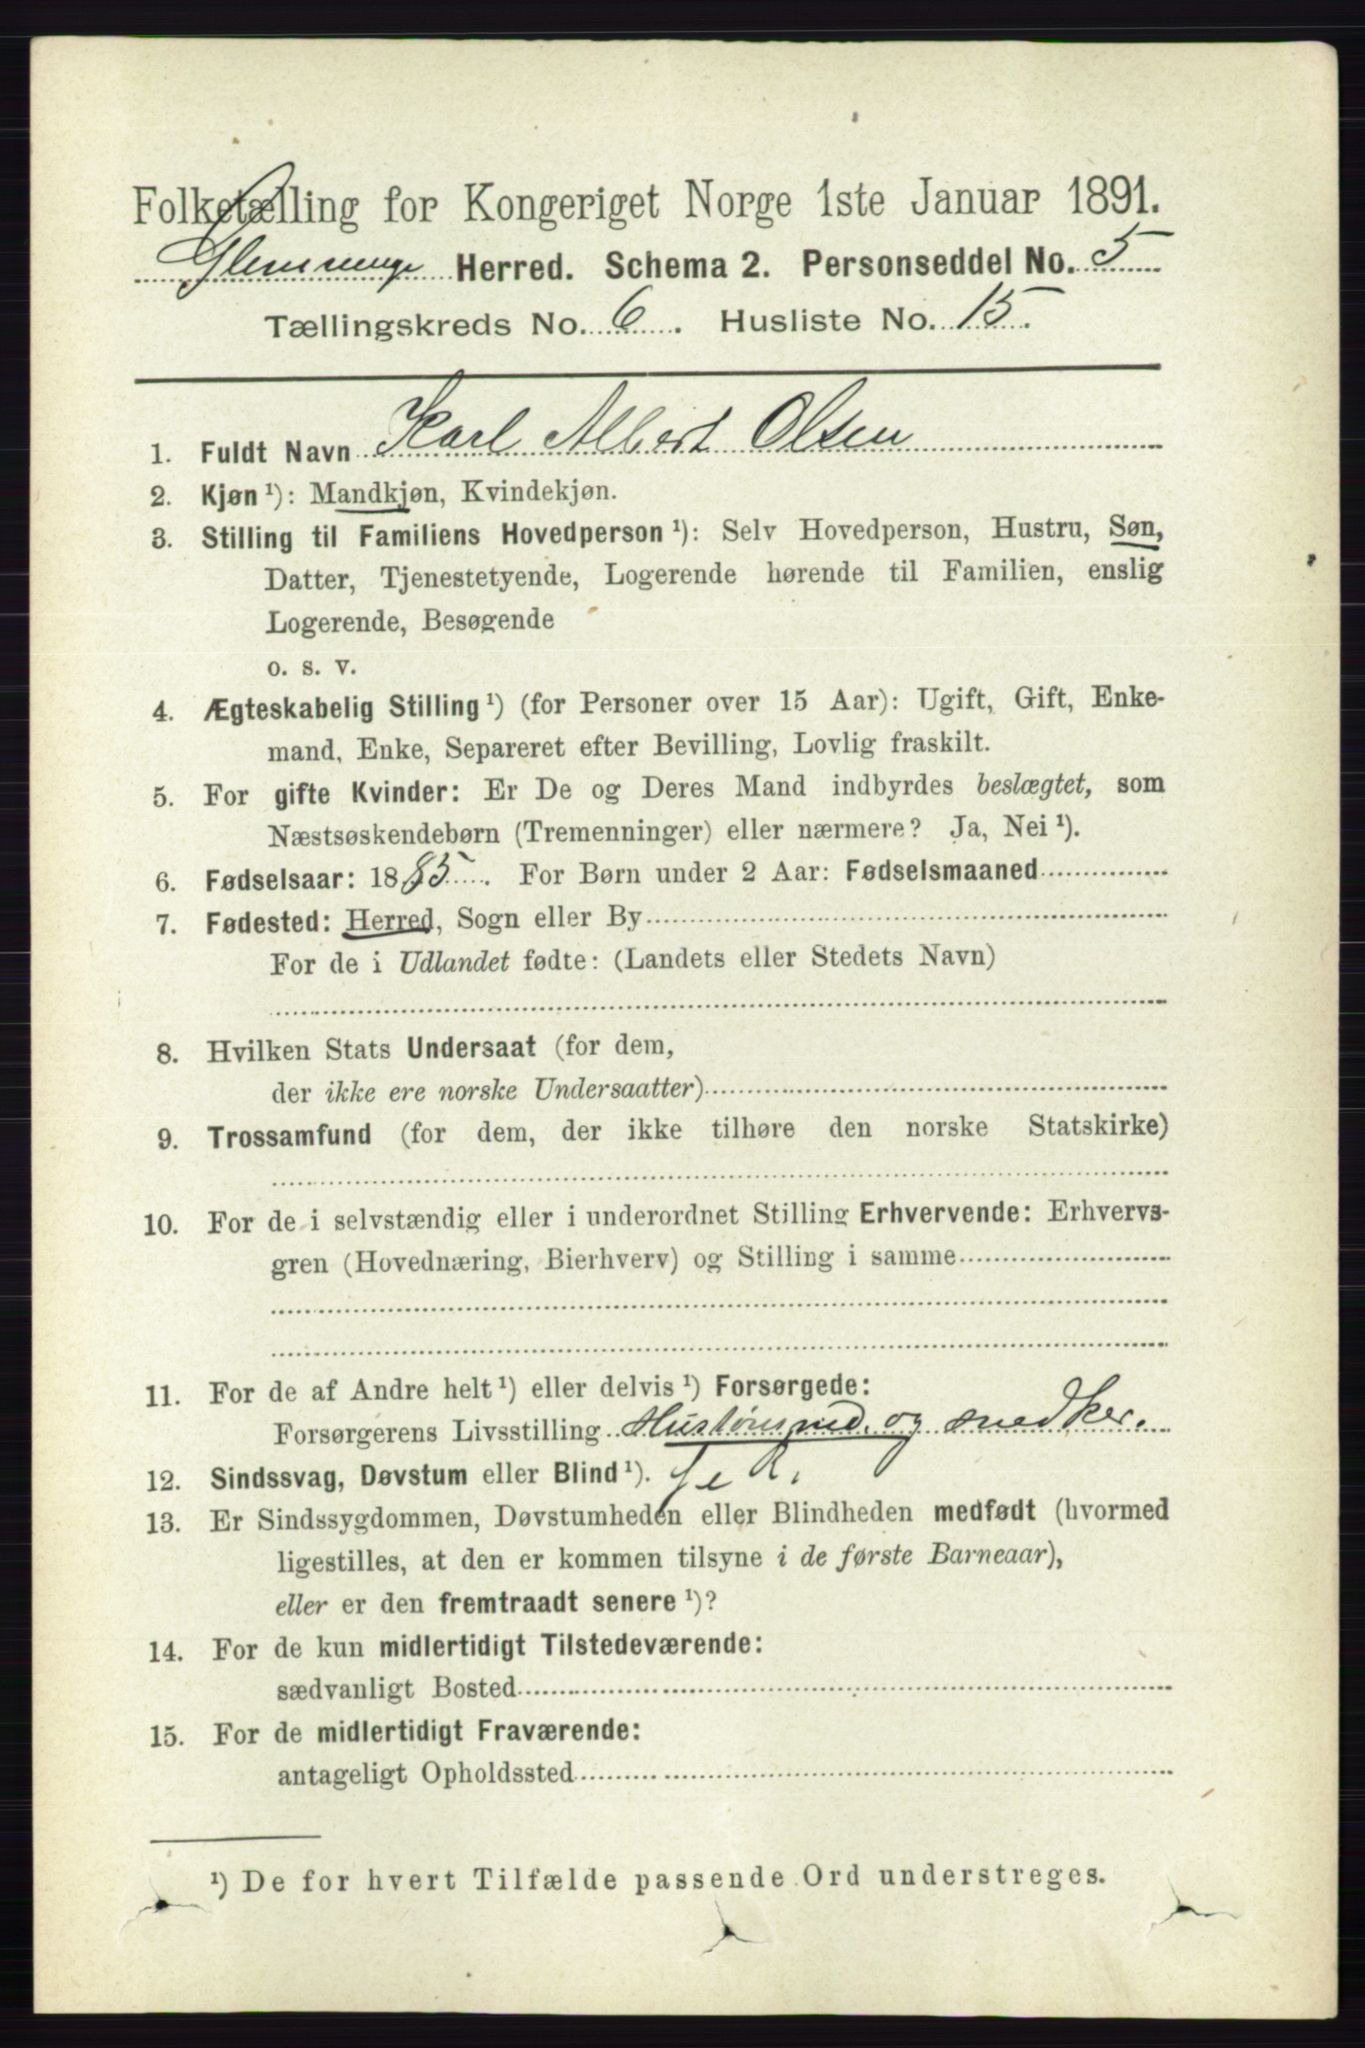 Folketælling for Kongeriget Norge 1ste Januar 1891.
Glemminge Herred. Schema 2. Personseddel No. 5
Tællingskreds No. 6. Husliste No. 15.
1. Fuldt Navn Karl Albert Olsen
2. Kjøn ¹): Mandkjøn, Kvindekjøn.
3. Stilling til Familiens Hovedperson ¹): Selv Hovedperson, Hustru, Søn,
Datter, Tjenestetyende, Logerende hørende til Familien, enslig
Logerende, Besøgende
o. s. v.
4. Ægteskabelig Stilling ¹) (for Personer over 15 Aar): Ugift, Gift, Enke-
mand, Enke, Separeret efter Bevilling, Lovlig fraskilt.
5. For gifte Kvinder: Er De og Deres Mand indbyrdes beslægtet, som
Næstsøskendebørn (Tremenninger) eller nærmere? Ja, Nei ¹).
6. Fødselsaar: 1885. For Børn under 2 Aar: Fødselsmaaned
7. Fødested: Herred, Sogn eller By
For de i Udlandet fødte: (Landets eller Stedets Navn)
8. Hvilken Stats Undersaat (for dem,
der ikke ere norske Undersaatter)
9. Trossamfund (for dem, der ikke tilhøre den norske Statskirke)
10. For de i selvstændig eller i underordnet Stilling Erhvervende: Erhvervs-
gren (Hovednæring, Bierhverv) og Stilling i samme
11. For de af Andre helt ¹) eller delvis ¹) Forsørgede:
Forsørgerens Livsstilling Hustømmd. og snedker.
12. Sindssvag, Døvstum eller Blind ¹).
13. Er Sindssygdommen, Døvstumheden eller Blindheden medfødt (hvormed
ligestilles, at den er kommen tilsyne i de første Barneaar),
eller er den fremtraadt senere ¹)?
14. For de kun midlertidigt Tilstedeværende:
sædvanligt Bosted
15. For de midlertidigt Fraværende:
antageligt Opholdssted
¹) De for hvert Tilfælde passende Ord understreges.